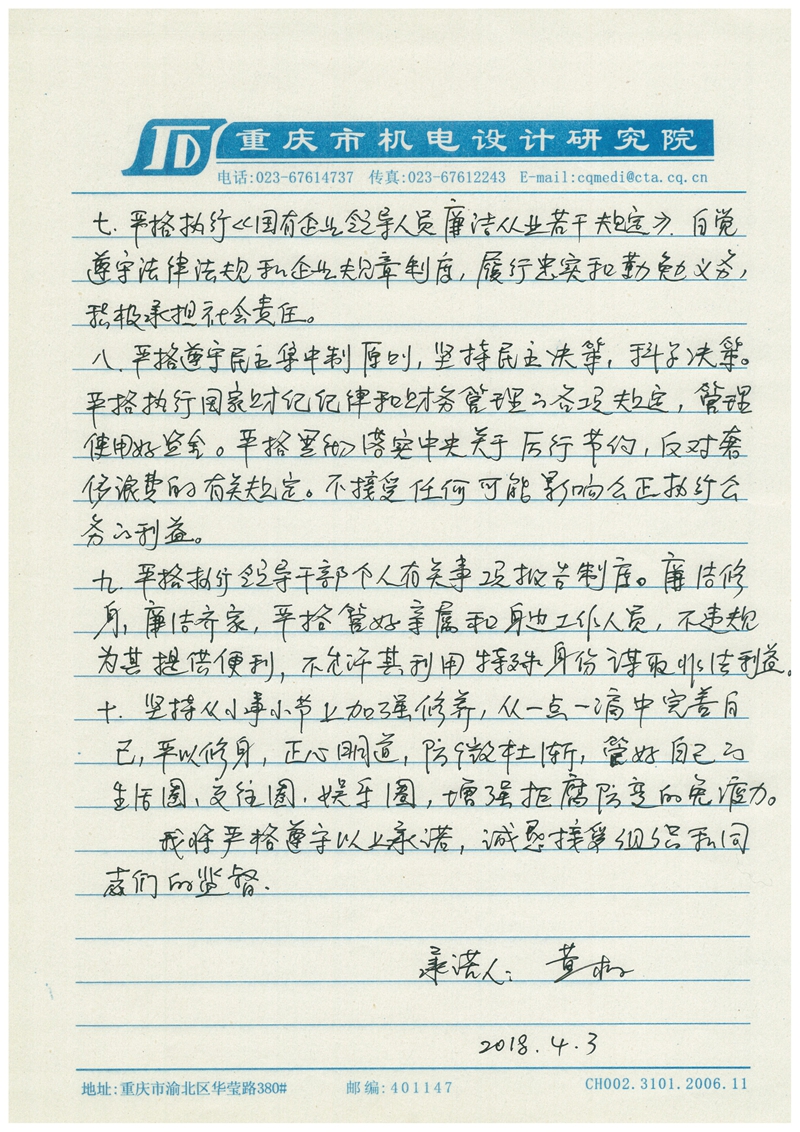 重庆市机电设计研究院
电话:023-67614737 传真:023-67612243 E-mail:cqmedi@cta.cq.cn
七.严格执行《国有企业领导人员廉洁从业若干规定》.自觉
遵守法律法规和企业规章制度，履行忠实和勤勉义务，
积极承担社会责任。
八.严格遵守民主集中制原则，坚持民主决策，科学决策。
严格执行国家财经纪律和财务管理的各项规定，管理
使用好资金。严格贯彻落实中央关于厉行节约，反对奢
侈浪费的有关规定。不接受任何可能影响公正执行公
务的利益。
九.严格执行领导干部个人有关事项报告制度。廉洁修
身，廉洁齐家，严格管好亲属和身边工作人员，不违规
为其提供便利，不允许其利用特殊身份谋取非法利益。
十.坚持从小事小节上加强修养，从一点一滴中完善自
己，严以修身，正心明道，防微杜渐，管好自己的
生活圈.交往圈.娱乐圈，增强拒腐防变的免疫力。
我将严格遵守以上承诺，诚恳接受组织和同
志们的监督.
承诺人：黄
2018.4.3
地址:重庆市渝北区华莹路380# 邮编:401147 CH002.3101.2006.11